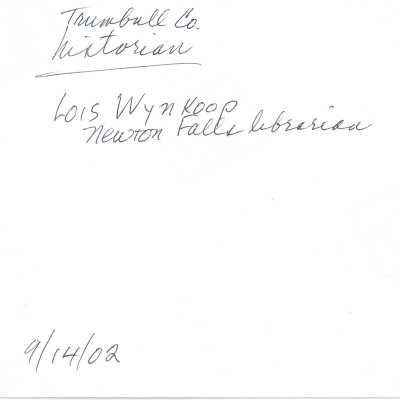 Trumbull Co.
historian
Lois Wynkoop
Newton Falls librarian
9/14/02